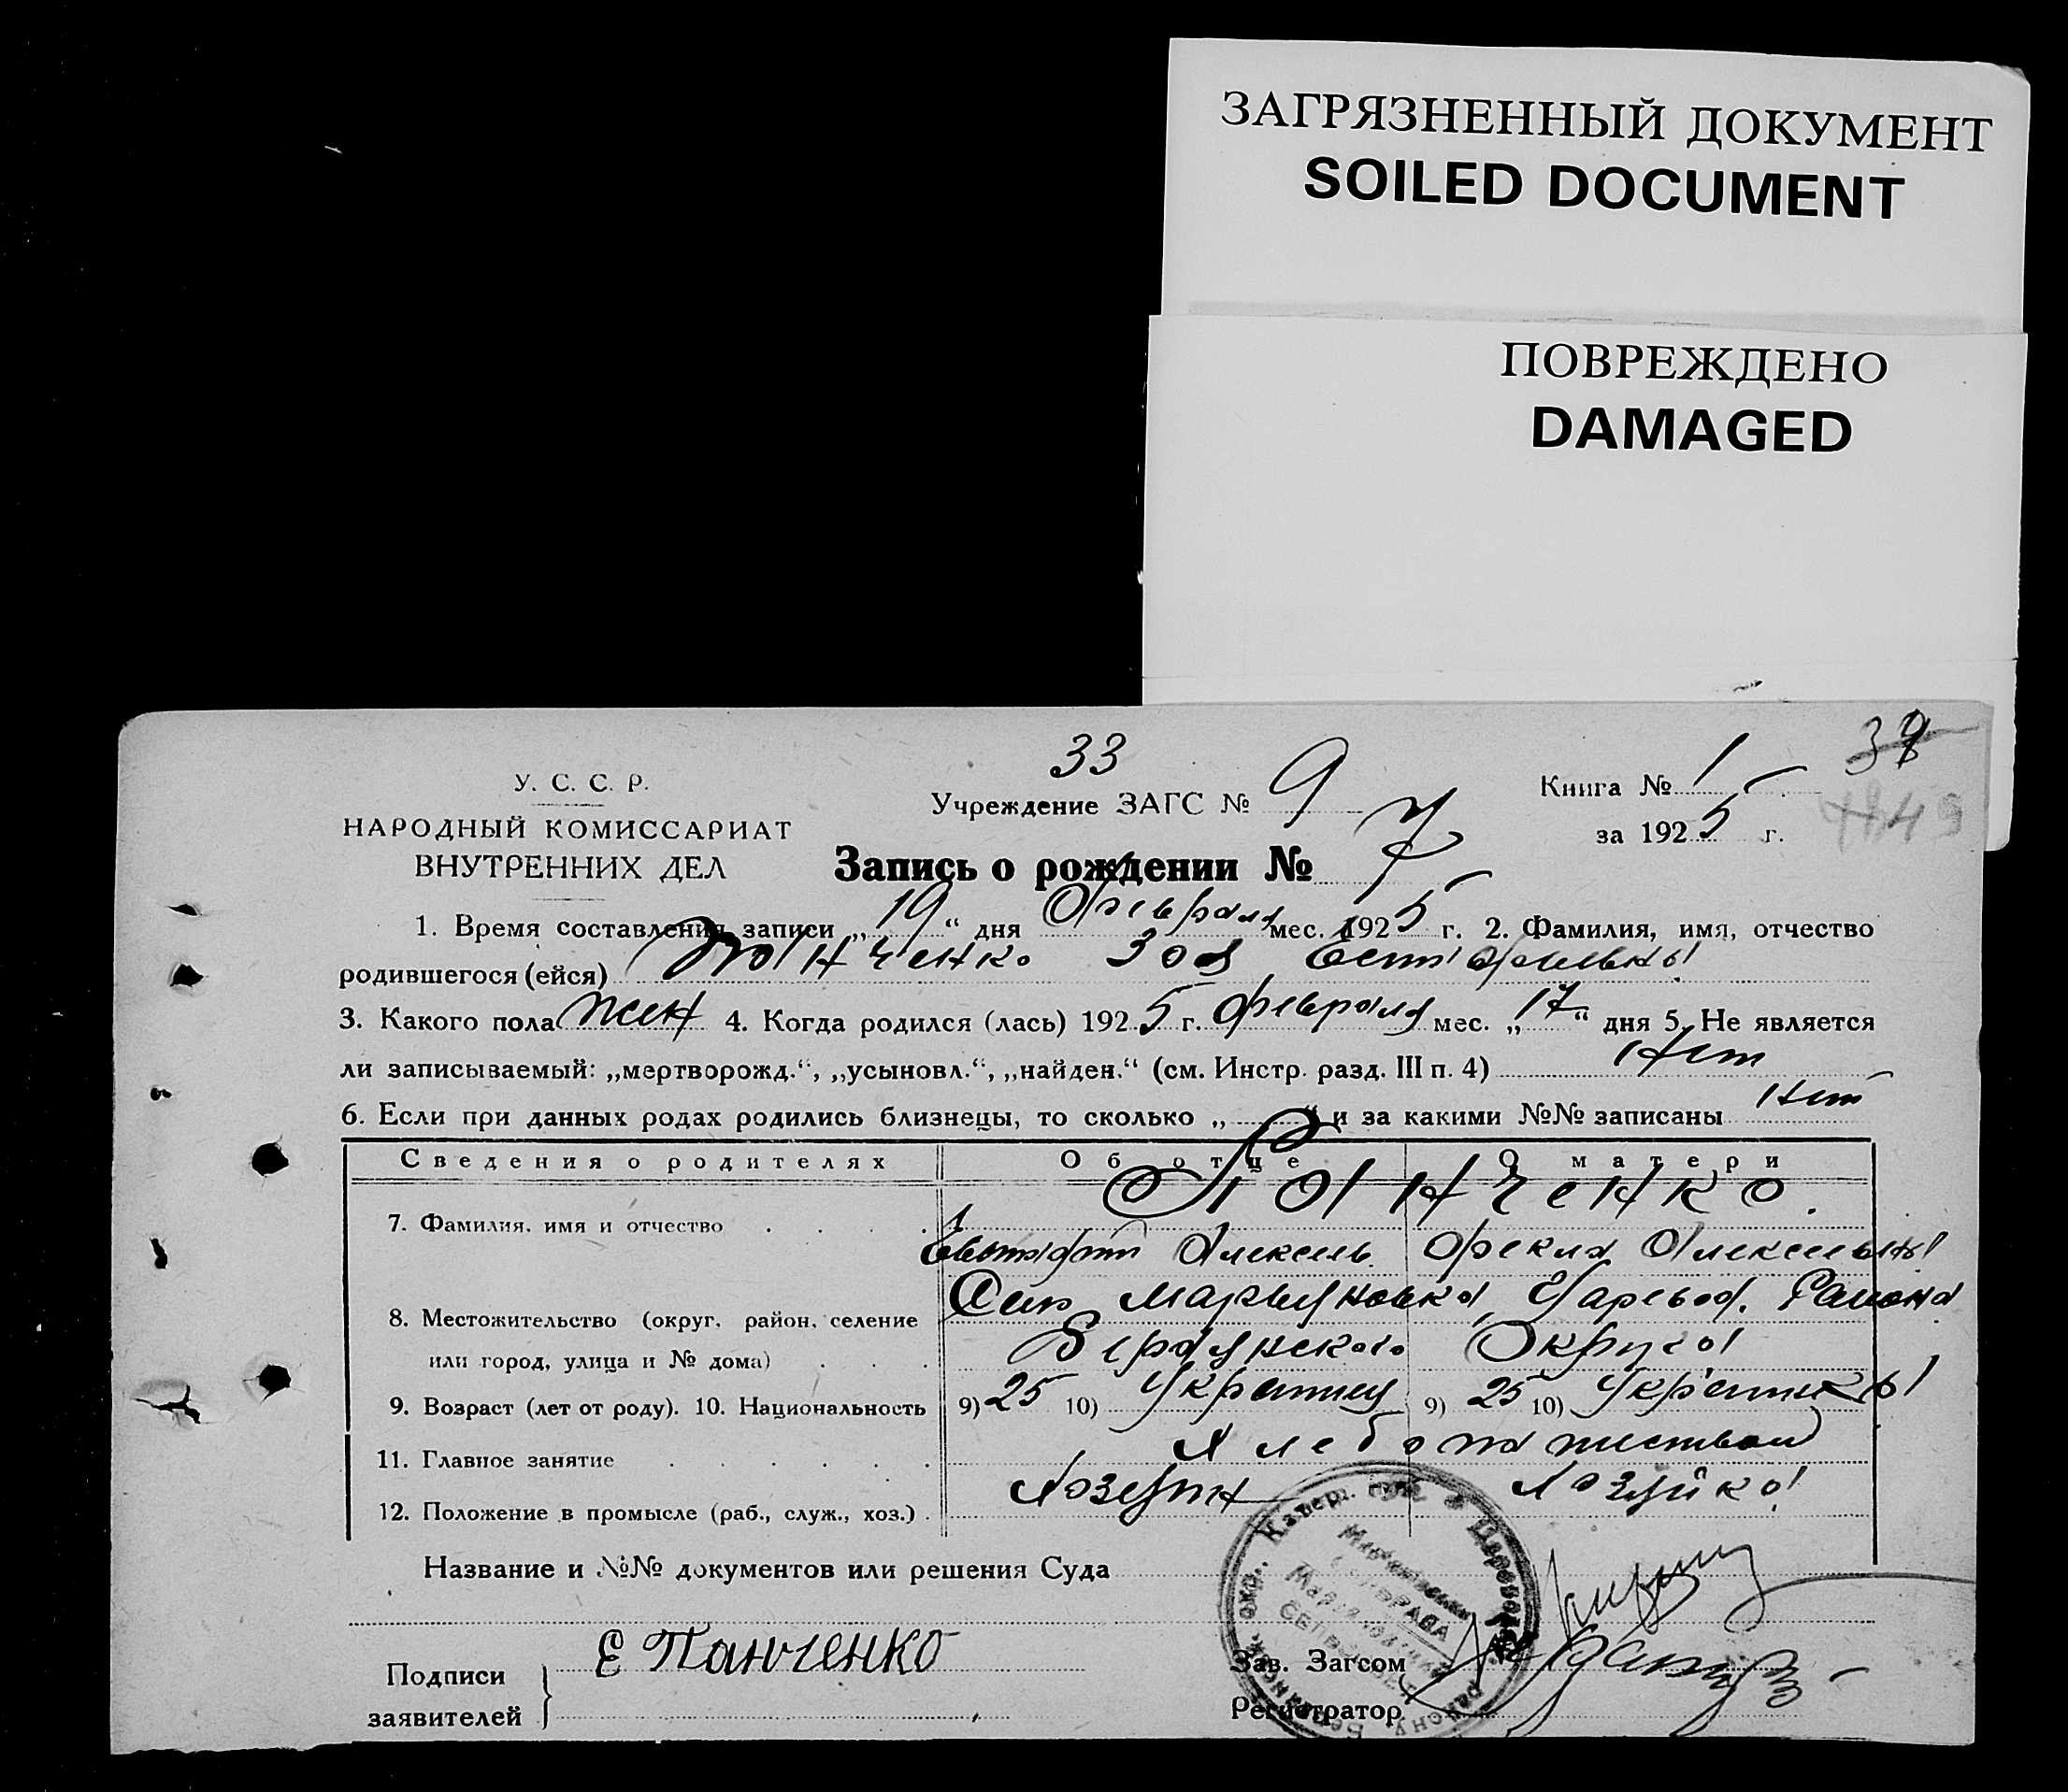 ЗАГРЯЗНЕННЫЙ ДОКУМЕНТ
SOILED DOCUMENT
ПОВРЕЖДЕНО
DAMAGED
33
У. С. С. Р.
НАРОДНЫЙ КОМИССАРИАТ
ВНУТРЕННИХ ДЕЛ
Учреждение ЗАГС № 9
Книга № 1
за 1925 г.
Запись о рождении № 7
1. Время составления записи „19“ дня Февраля мес. 1925 г. 2. Фамилия, имя, отчество
родившегося (ейся) Панченко Зоя
3. Какого пола жен 4. Когда родился (лась) 1925 г. февраля мес. „17“ дня 5. Не является
ли записываемый: „мертворожд.“, „усыновл.“, „найден.“ (см. Инстр. разд. III п. 4) Нет
6. Если при данных родах родились близнецы, то сколько „ “ и за какими №№ записаны Нет
Сведения о родителях Об отце О матери
Панченко.
7. Фамилия, имя и отчество
Алексеев. Фекла Алексеевна
8. Местожительство (округ, район, селение
или город, улица и № дома)
Марьяновка, Царевод. Района
Бердянского Округа
9. Возраст (лет от роду). 10. Национальность 9) 25 10) Украинец 9) 25 10) Украинка
11. Главное занятие Хлебопашеством
12. Положение в промысле (раб., служ., хоз.) Хозяин Хозяйка
Название и №№ документов или решения Суда
Подписи
заявителей
Е Панченко
Зав. Загсом
Регистратор